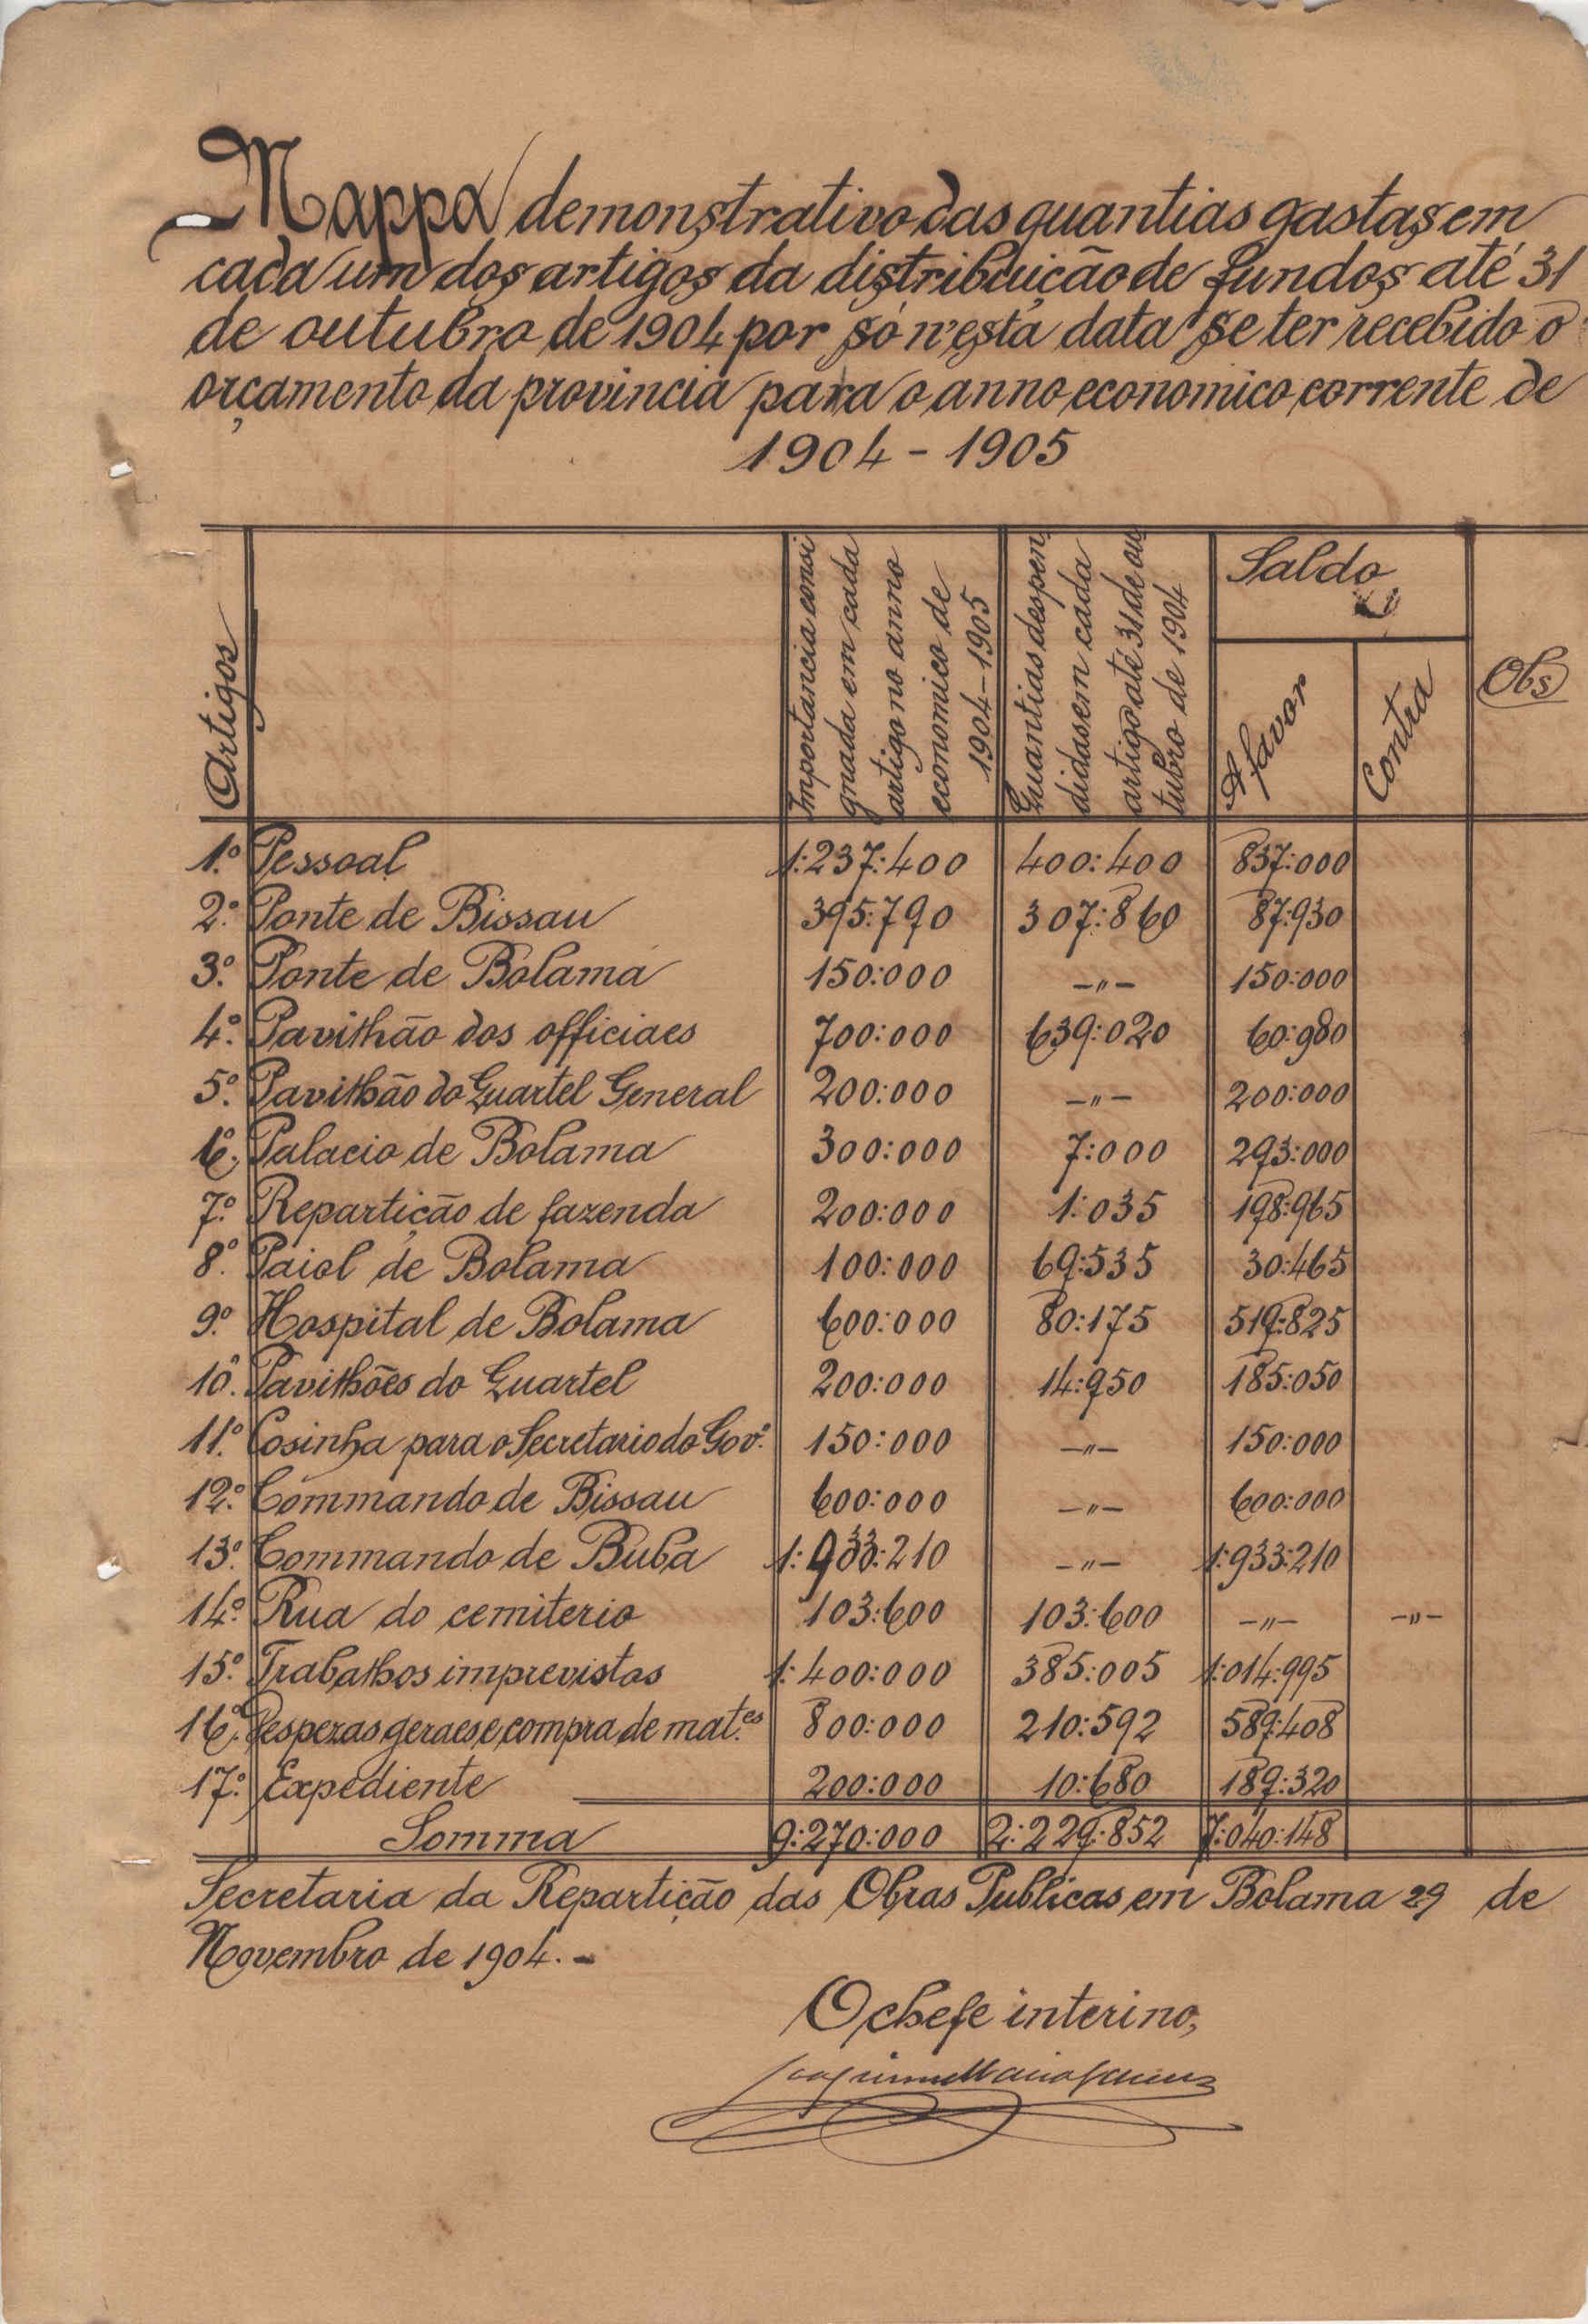 Mappa demonstrativo das quantias gastas em
cada um dos artigos da distribuição de fundos até 31
de outubro de 1904 por só n'esta data se ter recebido o
orçamento da provincia para o anno economico corrente de
1904 - 1905
Artigos
Importancia consi
gnada em cada
artigo no anno
economico de
1904-1905
Quantias despen
didas em cada
artigo até 31 de ou
tubro de 1904
Saldo
A favor
Contra
Obs
1.º Pessoal 1:237:400 400:400 837:000
2.º Ponte de Bissau 395:790 307:860 87:930
3.º Ponte de Bolama 150:000 -"- 150:000
4.º Pavilhão dos officiaes 700:000 639:020 60:980
5.º Pavilhão do Quartel General 200:000 -"- 200:000
6.º Palacio de Bolama 300:000 7:000 293:000
7.º Repartição de fazenda 200:000 1:035 198:965
8.º Paiol de Bolama 100:000 69:535 30:465
9.º Hospital de Bolama 600:000 80:175 519:825
10.º Pavilhões do Quartel 200:000 14:950 185:050
11.º Cosinha para o Secretario do Gov.º 150:000 -"- 150:000
12.º Commando de Bissau 600:000 -"- 600:000
13.º Commando de Buba 1:933:210 -"- 1:933:210
14.º Rua do cemiterio 103:600 103:600 -"- -"-
15.º Trabalhos imprevistos 1:400:000 385:005 1:014:995
16.º Despezas geraes e compra de mat.es 800:000 210:592 589:408
17.º Expediente 200:000 10:680 189:320
Somma 9:270:000 2:229:852 7:040:148
Secretaria da Repartição das Obras Publicas em Bolama 29 de
Novembro de 1904.-
O chefe interino,
Joaquim Maria